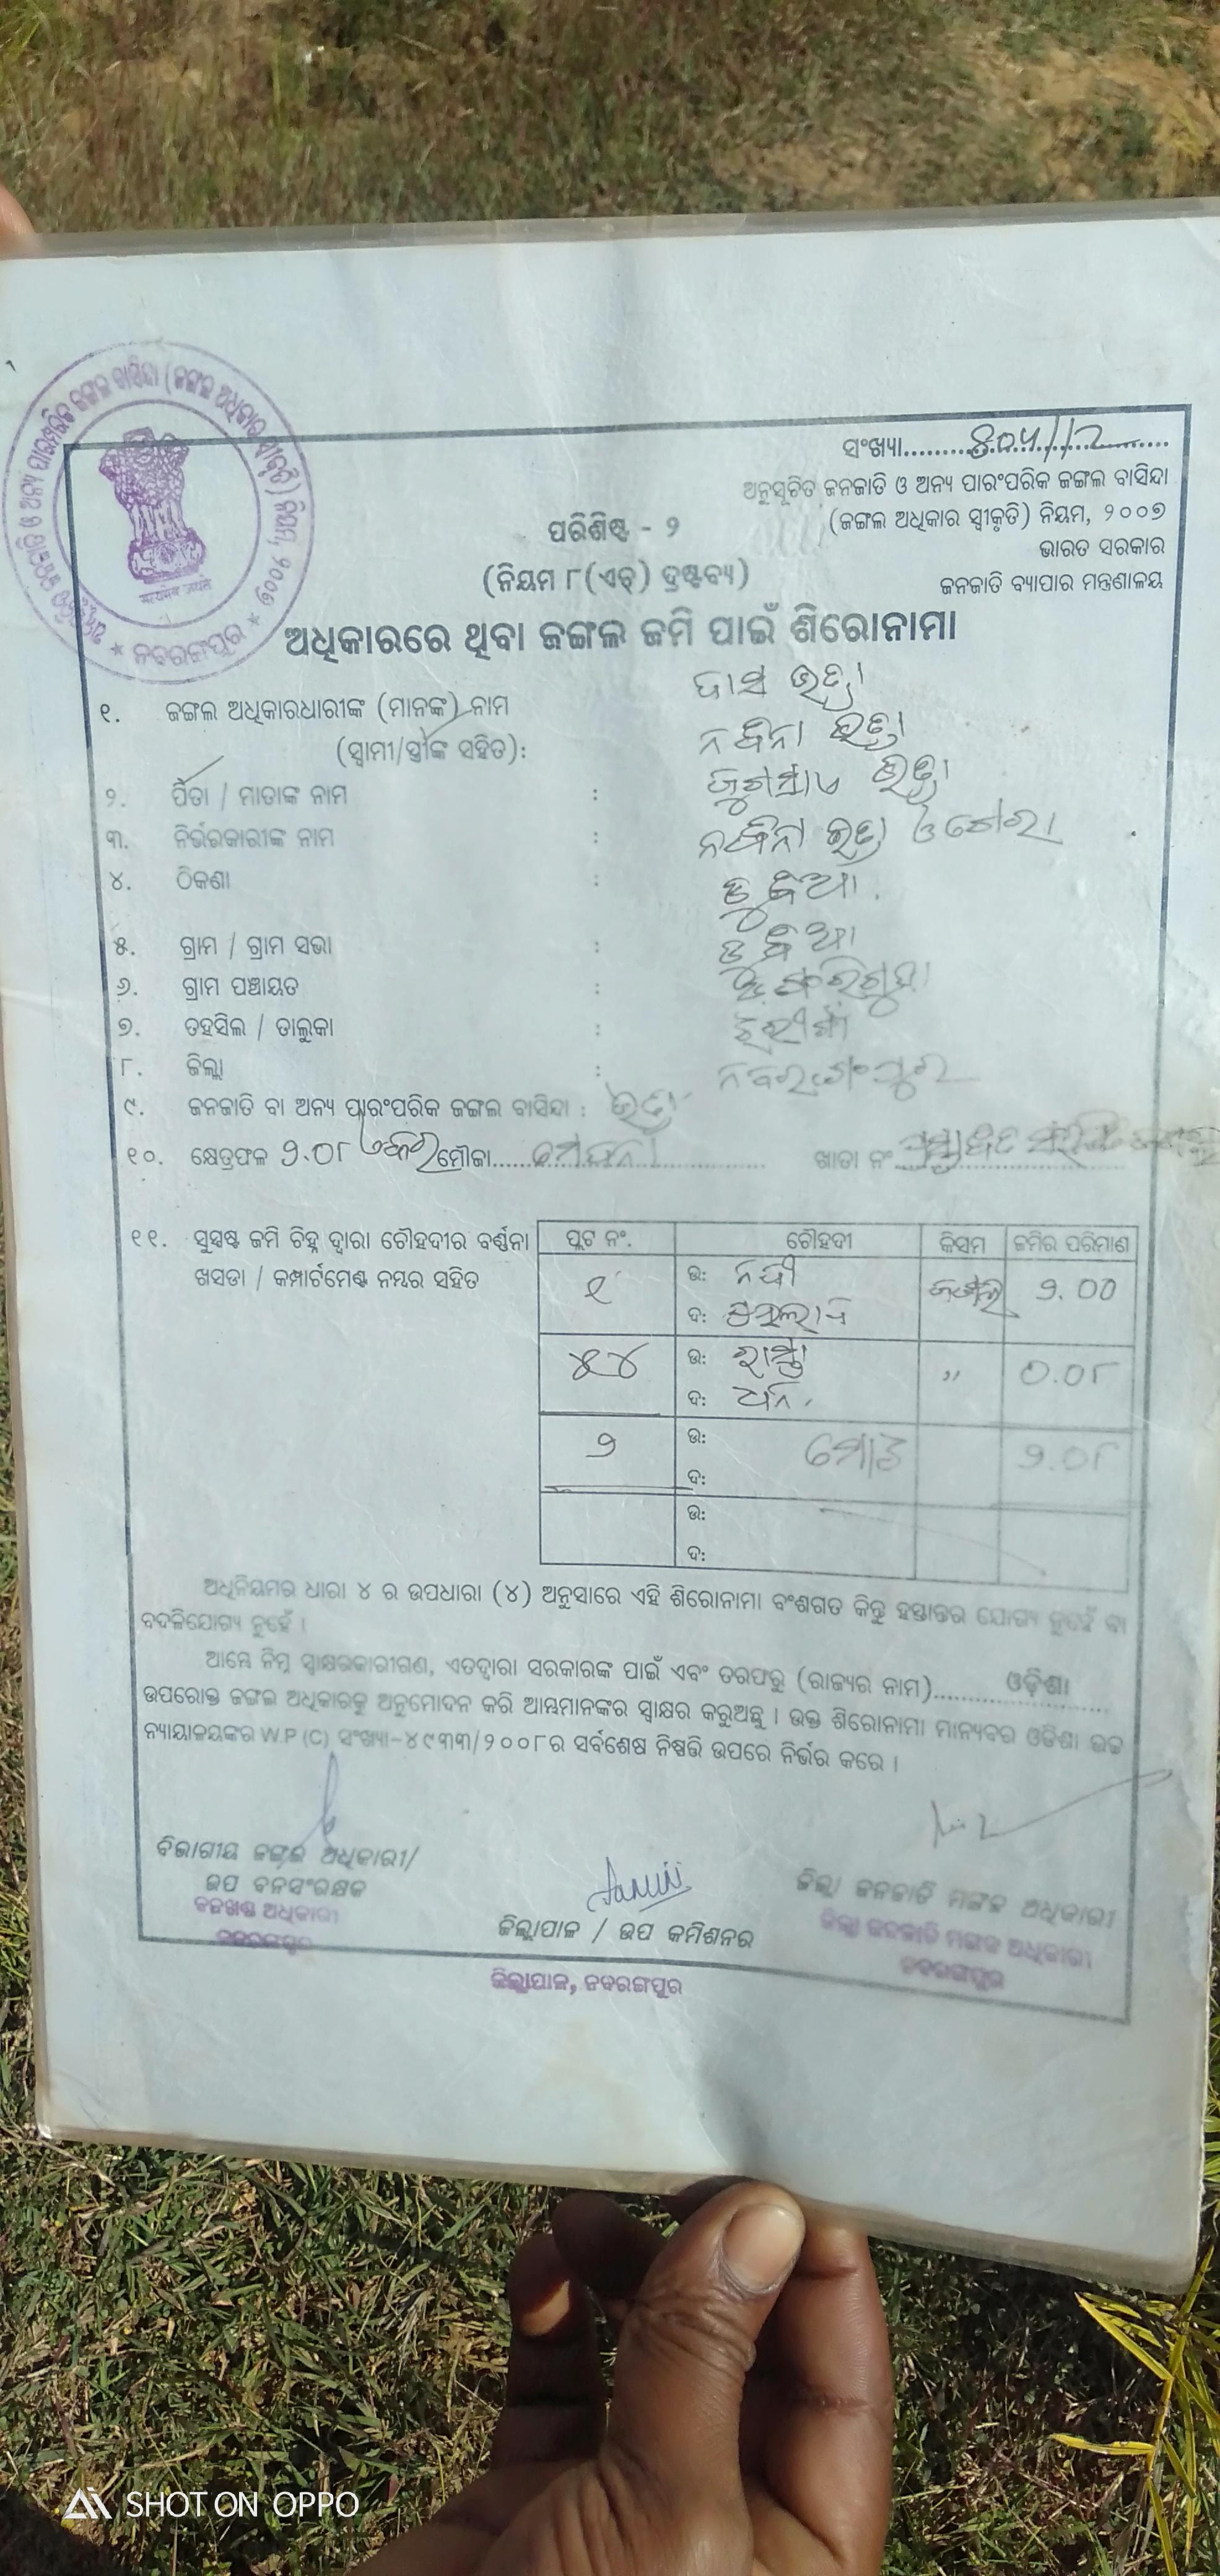 ସଂଖ୍ୟା
ଅନୁସୂଚିତ ଜନଜାତି ଓ ଅନ୍ୟ ପାରଂପରିକ ଜଙ୍ଗଲ ବାସିନ୍ଦା
(ଜଙ୍ଗଲ ଅଧିକାର ସ୍ୱୀକୃତି) ନିୟମ, ୨୦୦୭
ଭାରତ ସରକାର
ଜନଜାତି ବ୍ୟାପାର ମନ୍ତ୍ରଣାଳୟ
ପରିଶିଷ୍ଟ - ୨
(ନିୟମ ୮(ଏଚ୍) ଦ୍ରଷ୍ଟବ୍ୟ)
ନବରଙ୍ଗପୁର
ଅଧିକାରରେ ଥିବା ଜଙ୍ଗଲ ଜମି ପାଇଁ ଶିରୋନାମା
୧. ଜଙ୍ଗଲ ଅଧିକାରଧାରୀଙ୍କ (ମାନଙ୍କ) ନାମ ଦାସ ଭତ୍ରା
(ସ୍ୱାମୀ/ସ୍ତ୍ରୀଙ୍କ ସହିତ): ଭତ୍ରା
୨. ପିତା / ମାତାଙ୍କ ନାମ : ଭତ୍ରା
୩. ନିର୍ଭରକାରୀଙ୍କ ନାମ : ଭତ୍ରା
୪. ଠିକଣା :
୫. ଗ୍ରାମ / ଗ୍ରାମ ସଭା :
୬. ଗ୍ରାମ ପଞ୍ଚାୟତ :
୭. ତହସିଲ / ତାଲୁକା :
୮. ଜିଲ୍ଲା : ନବରଙ୍ଗପୁର
୯. ଜନଜାତି ବା ଅନ୍ୟ ପାରଂପରିକ ଜଙ୍ଗଲ ବାସିନ୍ଦା : ଭତ୍ରା
୧୦. କ୍ଷେତ୍ରଫଳ ୨.୦୮ ମୌଜା ଖାତା ନଂ
୧୧. ସୁସ୍ପଷ୍ଟ ଜମି ଚିହ୍ନ ଦ୍ୱାରା ଚୌହଦୀର ବର୍ଣ୍ଣନା
ଖସଡା / କମ୍ପାର୍ଟମେଣ୍ଟ ନମ୍ବର ସହିତ
ପ୍ଲଟ ନଂ. ଚୌହଦୀ କିସମ ଜମିର ପରିମାଣ
୧ ଉ: ନଦୀ ଜଙ୍ଗଲ ୨.୦୦
ଦ:
ଉ: ରାସ୍ତା " ୦.୦୮
ଦ:
୨ ଉ: ମୋଟ ୨.୦୮
ଦ:
ଉ:
ଦ:
ଅଧିନିୟମର ଧାରା ୪ ର ଉପଧାରା (୪) ଅନୁସାରେ ଏହି ଶିରୋନାମା ବଂଶଗତ କିନ୍ତୁ ହସ୍ତାନ୍ତର ଯୋଗ୍ୟ ନୁହେଁ ବା
ବଦଳିଯୋଗ୍ୟ ନୁହେଁ ।
ଆମ୍ଭେ ନିମ୍ନ ସ୍ୱାକ୍ଷରକାରୀଗଣ, ଏତଦ୍ୱାରା ସରକାରଙ୍କ ପାଇଁ ଏବଂ ତରଫରୁ (ରାଜ୍ୟର ନାମ) ଓଡ଼ିଶା
ଉପରୋକ୍ତ ଜଙ୍ଗଲ ଅଧିକାରକୁ ଅନୁମୋଦନ କରି ଆମ୍ଭମାନଙ୍କର ସ୍ୱାକ୍ଷର କରୁଅଛୁ । ଉକ୍ତ ଶିରୋନାମା ମାନ୍ୟବର ଓଡିଶା ଉଚ୍ଚ
ନ୍ୟାୟାଳୟଙ୍କର W.P (C) ସଂଖ୍ୟା-୪୯୩୩/୨୦୦୮ର ସର୍ବଶେଷ ନିଷ୍ପତ୍ତି ଉପରେ ନିର୍ଭର କରେ ।
ବିଭାଗୀୟ ଜଙ୍ଗଲ ଅଧିକାରୀ/
ଉପ ବନସଂରକ୍ଷକ
ବନଖଣ୍ଡ ଅଧିକାରୀ
ନବରଙ୍ଗପୁର
ଜିଲ୍ଲାପାଳ / ଉପ କମିଶନର
ଜିଲ୍ଲାପାଳ, ନବରଙ୍ଗପୁର
ଜିଲ୍ଲା ଜନଜାତି ମଙ୍ଗଳ ଅଧିକାରୀ
ଜିଲ୍ଲା ଜନଜାତି ମଙ୍ଗଳ ଅଧିକାରୀ
ନବରଙ୍ଗପୁର
SHOT ON OPPO